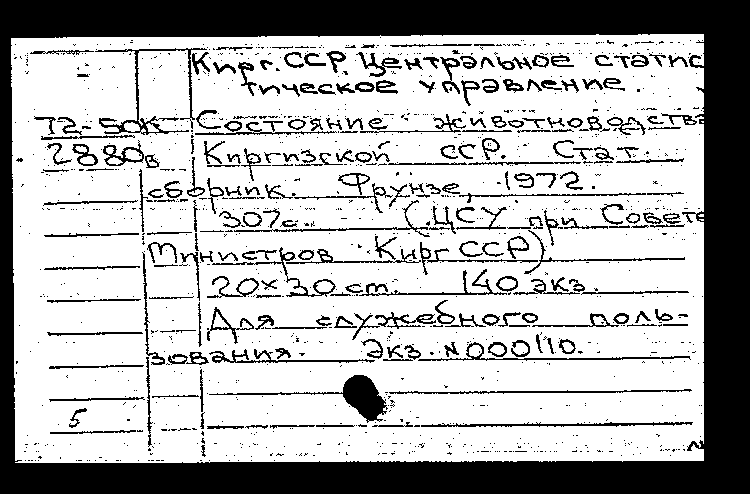 Кирг. ССР. Центральное статис
тическое управление.
72-50К Состояние животноводства
2880в Киргизской ССР. Стат.
сборник. Фрунзе, 1972.
307с. (ЦСУ при Совете
Министров Кирг ССР).
20×30 см. 140 экз.
Для служебного поль-
зования. Экз. №000110.
5